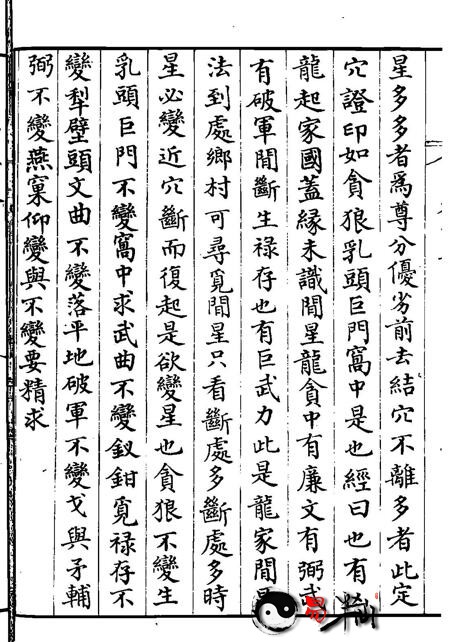 星多多者爲尊分優劣前去結穴不離多者此定
穴證印如貪狼乳頭巨門窩中是也經曰也有
龍起家國蓋緣未識閒星龍貪中有廉文有弼武
有破軍閒斷生祿存也有巨武力此是龍家閒星
法到處鄉村可尋覓閒星只看斷處多斷處多時
星必變近穴斷而復起是欲變星也貪狼不變生
乳頭巨門不變窩中求武曲不變釵鉗覓祿存不
變犁壁頭文曲不變落平地破軍不變戈與矛輔
弼不變燕窠仰變與不變要精求